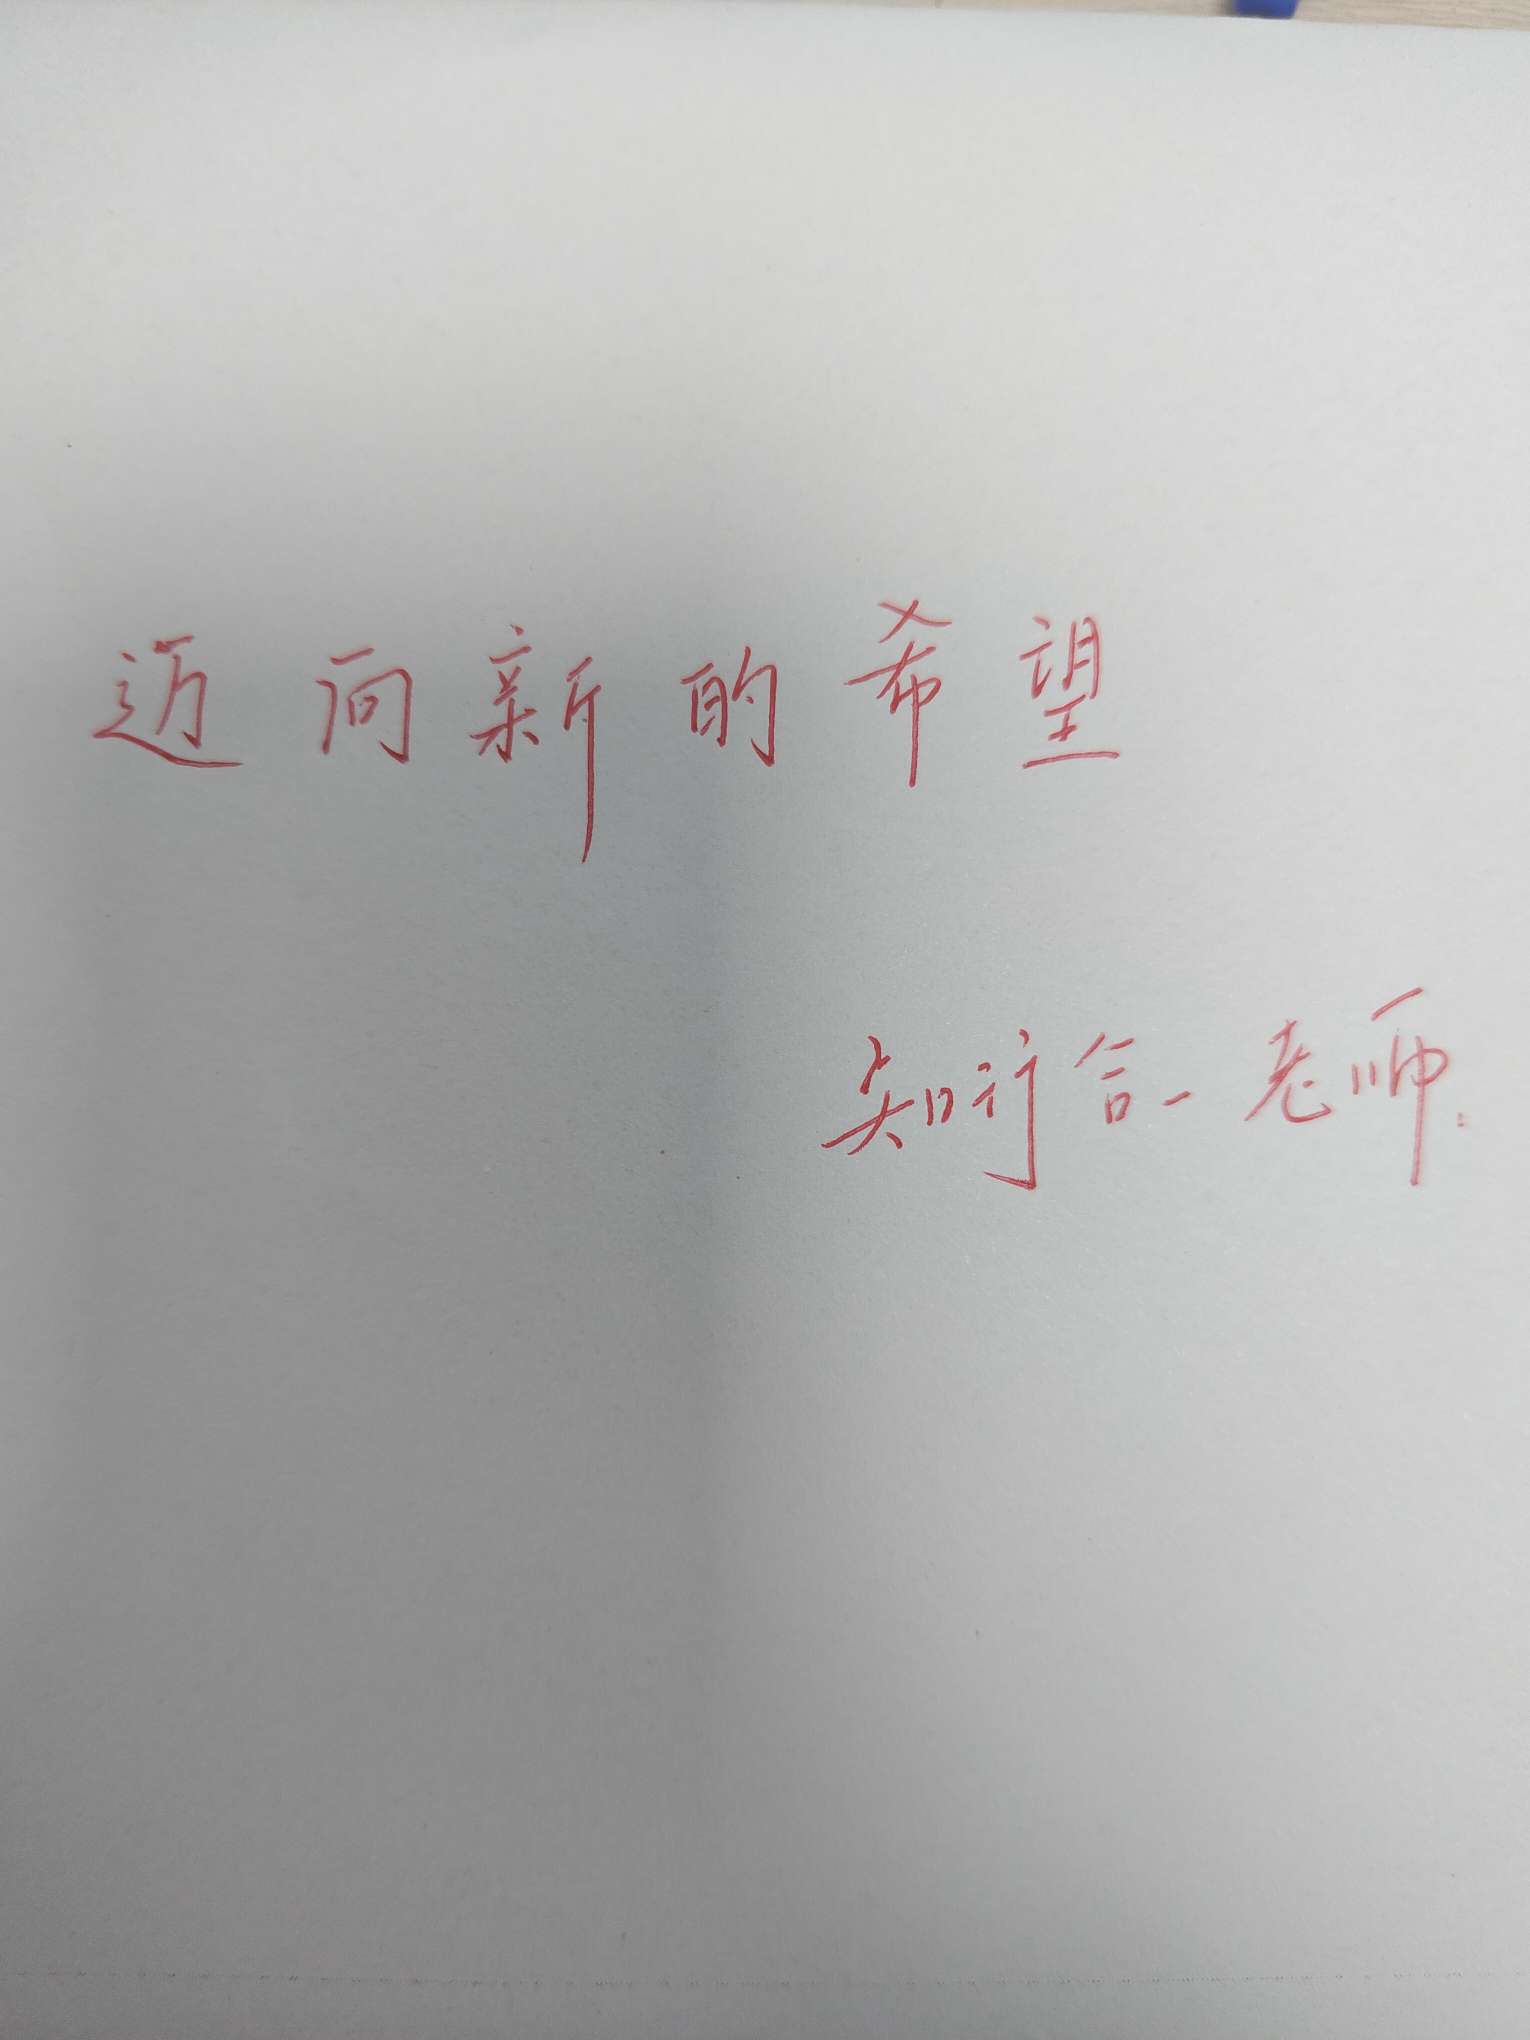 迈向新的希望
知行合一老师.